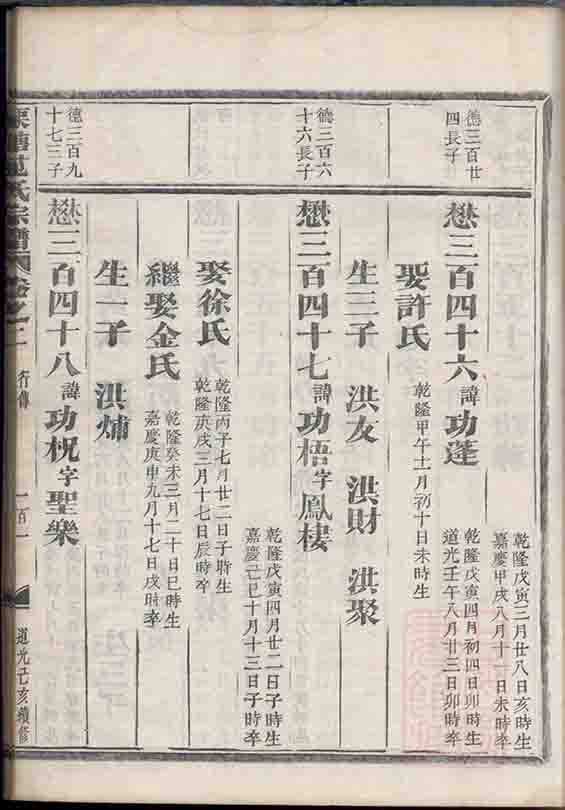 乾隆戊寅三月廿八日亥時生
嘉慶甲戌八月十一日未時卒
德三百廿
四長子
懋三百四十六諱功蓬
乾隆戊寅四月初四日卯時生
道光壬午八月廿三日卯時卒
娶許氏
乾隆甲午十二月初十日未時生
生三子 洪友 洪財 洪聚
德三百六
十六長子
懋三百四十七諱功梧字鳳棲
乾隆戊寅四月廿二日子時生
嘉慶己巳十月十三日子時卒
娶徐氏
乾隆丙子七月廿二日子時生
乾隆庚戌三月十七日辰時卒
繼娶金氏
乾隆癸未三月二十日巳時生
嘉慶庚申九月十七日戌時卒
生一子 洪烳
德三百九
十七三子
懋三百四十八諱功柷字聖樂
范氏宗譜 卷之二 行傳 一百一 道光己亥續修